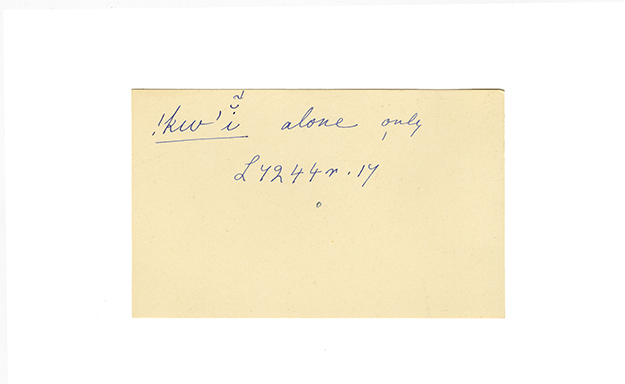 !kw'ĩ̆ alone, only
L 7244r. 17